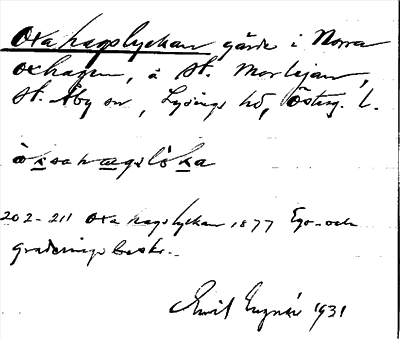 Oxahagslyckan gärde i Norra
oxhagen, å St. Morlejan,
St. Åby sn, Lysings hd, Österg. l.
òksahægslö̀ka
202-211 Oxahagslyckan 1877 Ego- och
graderings beskr.
Emil 1931